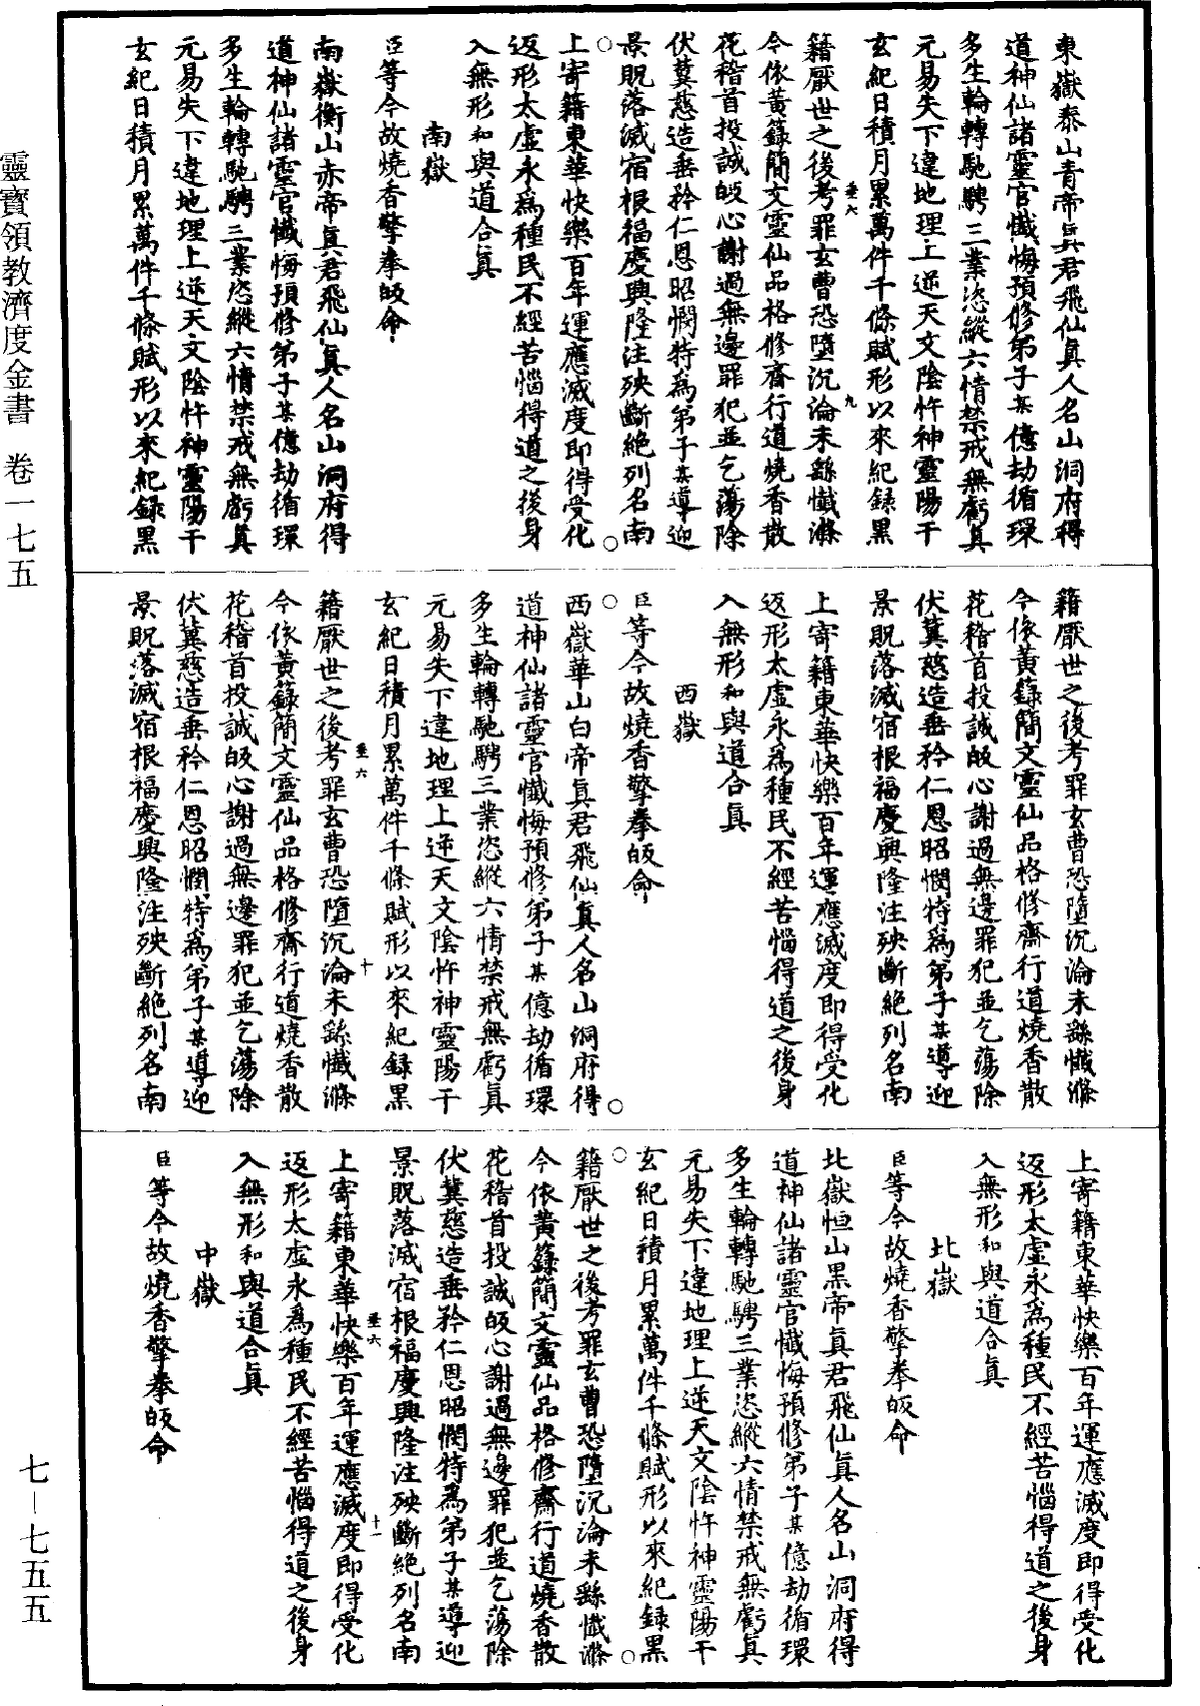 東嶽泰山青帝真君飛仙真人名山洞府得
道神仙諸靈官懺悔預修弟子某億劫循環
多生輪轉馳騁三業恣縱六情禁戒無虧真
元易失下違地理上逆天文陰忤神靈陽干
玄紀日積月累萬件千條賦形以來紀錄黑
籍厭世之後考罪玄曹恐墮沉淪未繇懺滌
今依黃籙簡文靈仙品格修齋行道燒香散
花稽首投誠皈心謝過無邊罪犯並乞蕩除
伏冀慈造垂矜仁恩昭憫特為弟子某導迎
景貺落滅宿根福慶興隆注殃斷絕列名南
上寄籍東華快樂百年運應滅度即得受化
返形太虛永為種民不經苦惱得道之後身
入無形和與道合真
南嶽
臣等今故燒香擎拳皈命
南嶽衡山赤帝真君飛仙真人名山洞府得
道神仙諸靈官懺悔預修弟子某億劫循環
多生輪轉馳騁三業恣縱六情禁戒無虧真
元易失下違地理上逆天文陰忤神靈陽干
玄紀日積月累萬件千條賦形以來紀錄黑
籍厭世之後考罪玄曹恐墮沉淪未繇懺滌
今依黃籙簡文靈仙品格修齋行道燒香散
花稽首投誠皈心謝過無邊罪犯並乞蕩除
伏冀慈造垂矜仁恩昭憫特為弟子某導迎
景貺落滅宿根福慶興隆注殃斷絕列名南
上寄籍東華快樂百年運應滅度即得受化
返形太虛永為種民不經苦惱得道之後身
入無形和與道合真
西嶽
臣等今故燒香擎拳皈命
西嶽華山白帝真君飛仙真人名山洞府得
道神仙諸靈官懺悔預修弟子某億劫循環
多生輪轉馳騁三業恣縱六情禁戒無虧真
元易失下違地理上逆天文陰忤神靈陽干
玄紀日積月累萬件千條賦形以來紀錄黑
籍厭世之後考罪玄曹恐墮沉淪未繇懺滌
今依黃籙簡文靈仙品格修齋行道燒香散
花稽首投誠皈心謝過無邊罪犯並乞蕩除
伏冀慈造垂矜仁恩昭憫特為弟子某導迎
景貺落滅宿根福慶興隆注殃斷絕列名南
上寄籍東華快樂百年運應滅度即得受化
返形太虛永為種民不經苦惱得道之後身
入無形和與道合真
北嶽
臣等今故燒香擎拳皈命
北嶽恒山黑帝真君飛仙真人名山洞府得
道神仙諸靈官懺悔預修弟子某億劫循環
多生輪轉馳騁三業恣縱六情禁戒無虧真
元易失下違地理上逆天文陰忤神靈陽干
玄紀日積月累萬件千條賦形以來紀錄黑
籍厭世之後考罪玄曹恐墮沉淪未繇懺滌
今依黃籙簡文靈仙品格修齋行道燒香散
花稽首投誠皈心謝過無邊罪犯並乞蕩除
伏冀慈造垂矜仁恩昭憫特為弟子某導迎
景貺落滅宿根福慶興隆注殃斷絕列名南
上寄籍東華快樂百年運應滅度即得受化
返形太虛永為種民不經苦惱得道之後身
入無形和與道合真
中嶽
臣等今故燒香擎拳皈命
靈寶領教濟度金書 卷一七五
七－七五五